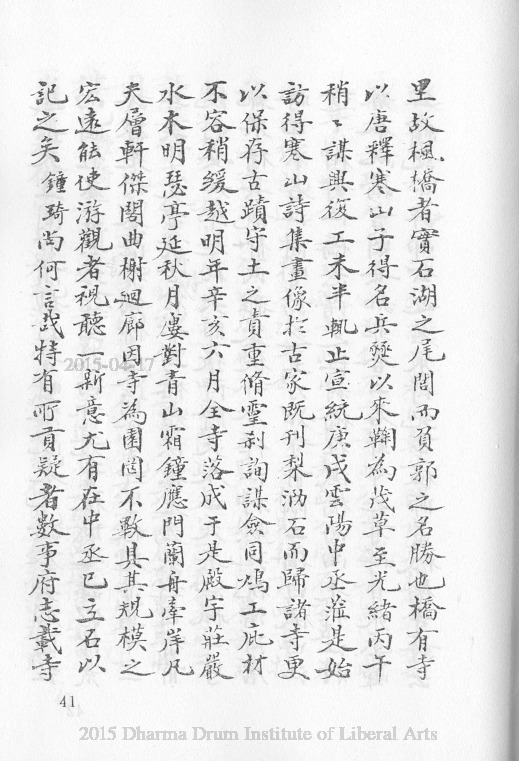 里故楓橋者實石湖之尾閭而負郭之名勝也橋有寺
以唐釋寒山子得名兵燹以來鞠為茂草至光緒丙午
稍稍謀興復工未半輒止宣統庚戌雲陽中丞蒞是始
訪得寒山詩集畫像於古家既刊梨泐石而歸諸寺更
以保存古蹟守土之責重脩靈剎詢謀僉同鳩工庀材
不容稍緩越明年辛亥六月全寺落成于是殿宇莊嚴
水木明瑟亭延秋月廔對青山霜鐘應門蘭舟牽岸凡
夫層軒傑閣曲榭迴廊因寺為園閎不斁具其規模之
宏遠能使游觀者視聽一新意尤有在中丞已立石以
記之矣鍾琦尚何言哉特有所貢疑者數事府志載寺
41
2015-04-17
2015 Dharma Drum Institute of Liberal Arts